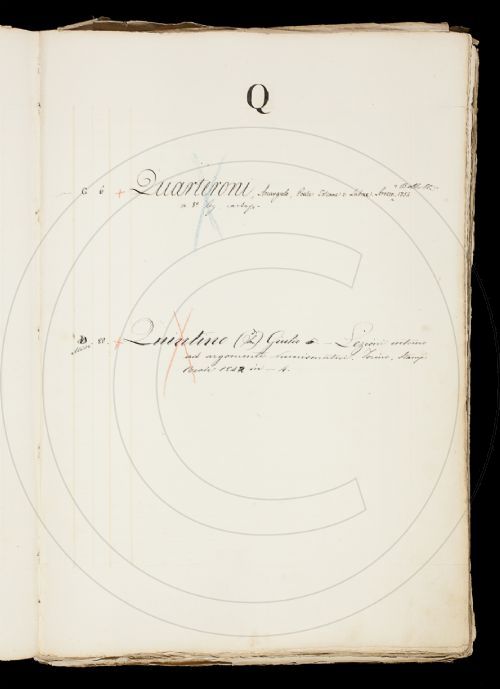 Q
C 6 + Quarteroni, Arcangelo, Poesie Italiane e Latine. Arezzo, 1851
in 8°. leg. cartap.
80. + Quintino (S) Giulio – Lezioni intorno
ad argomenti numismatici. Torino, Stamp.
Reale 1842 in – 4.